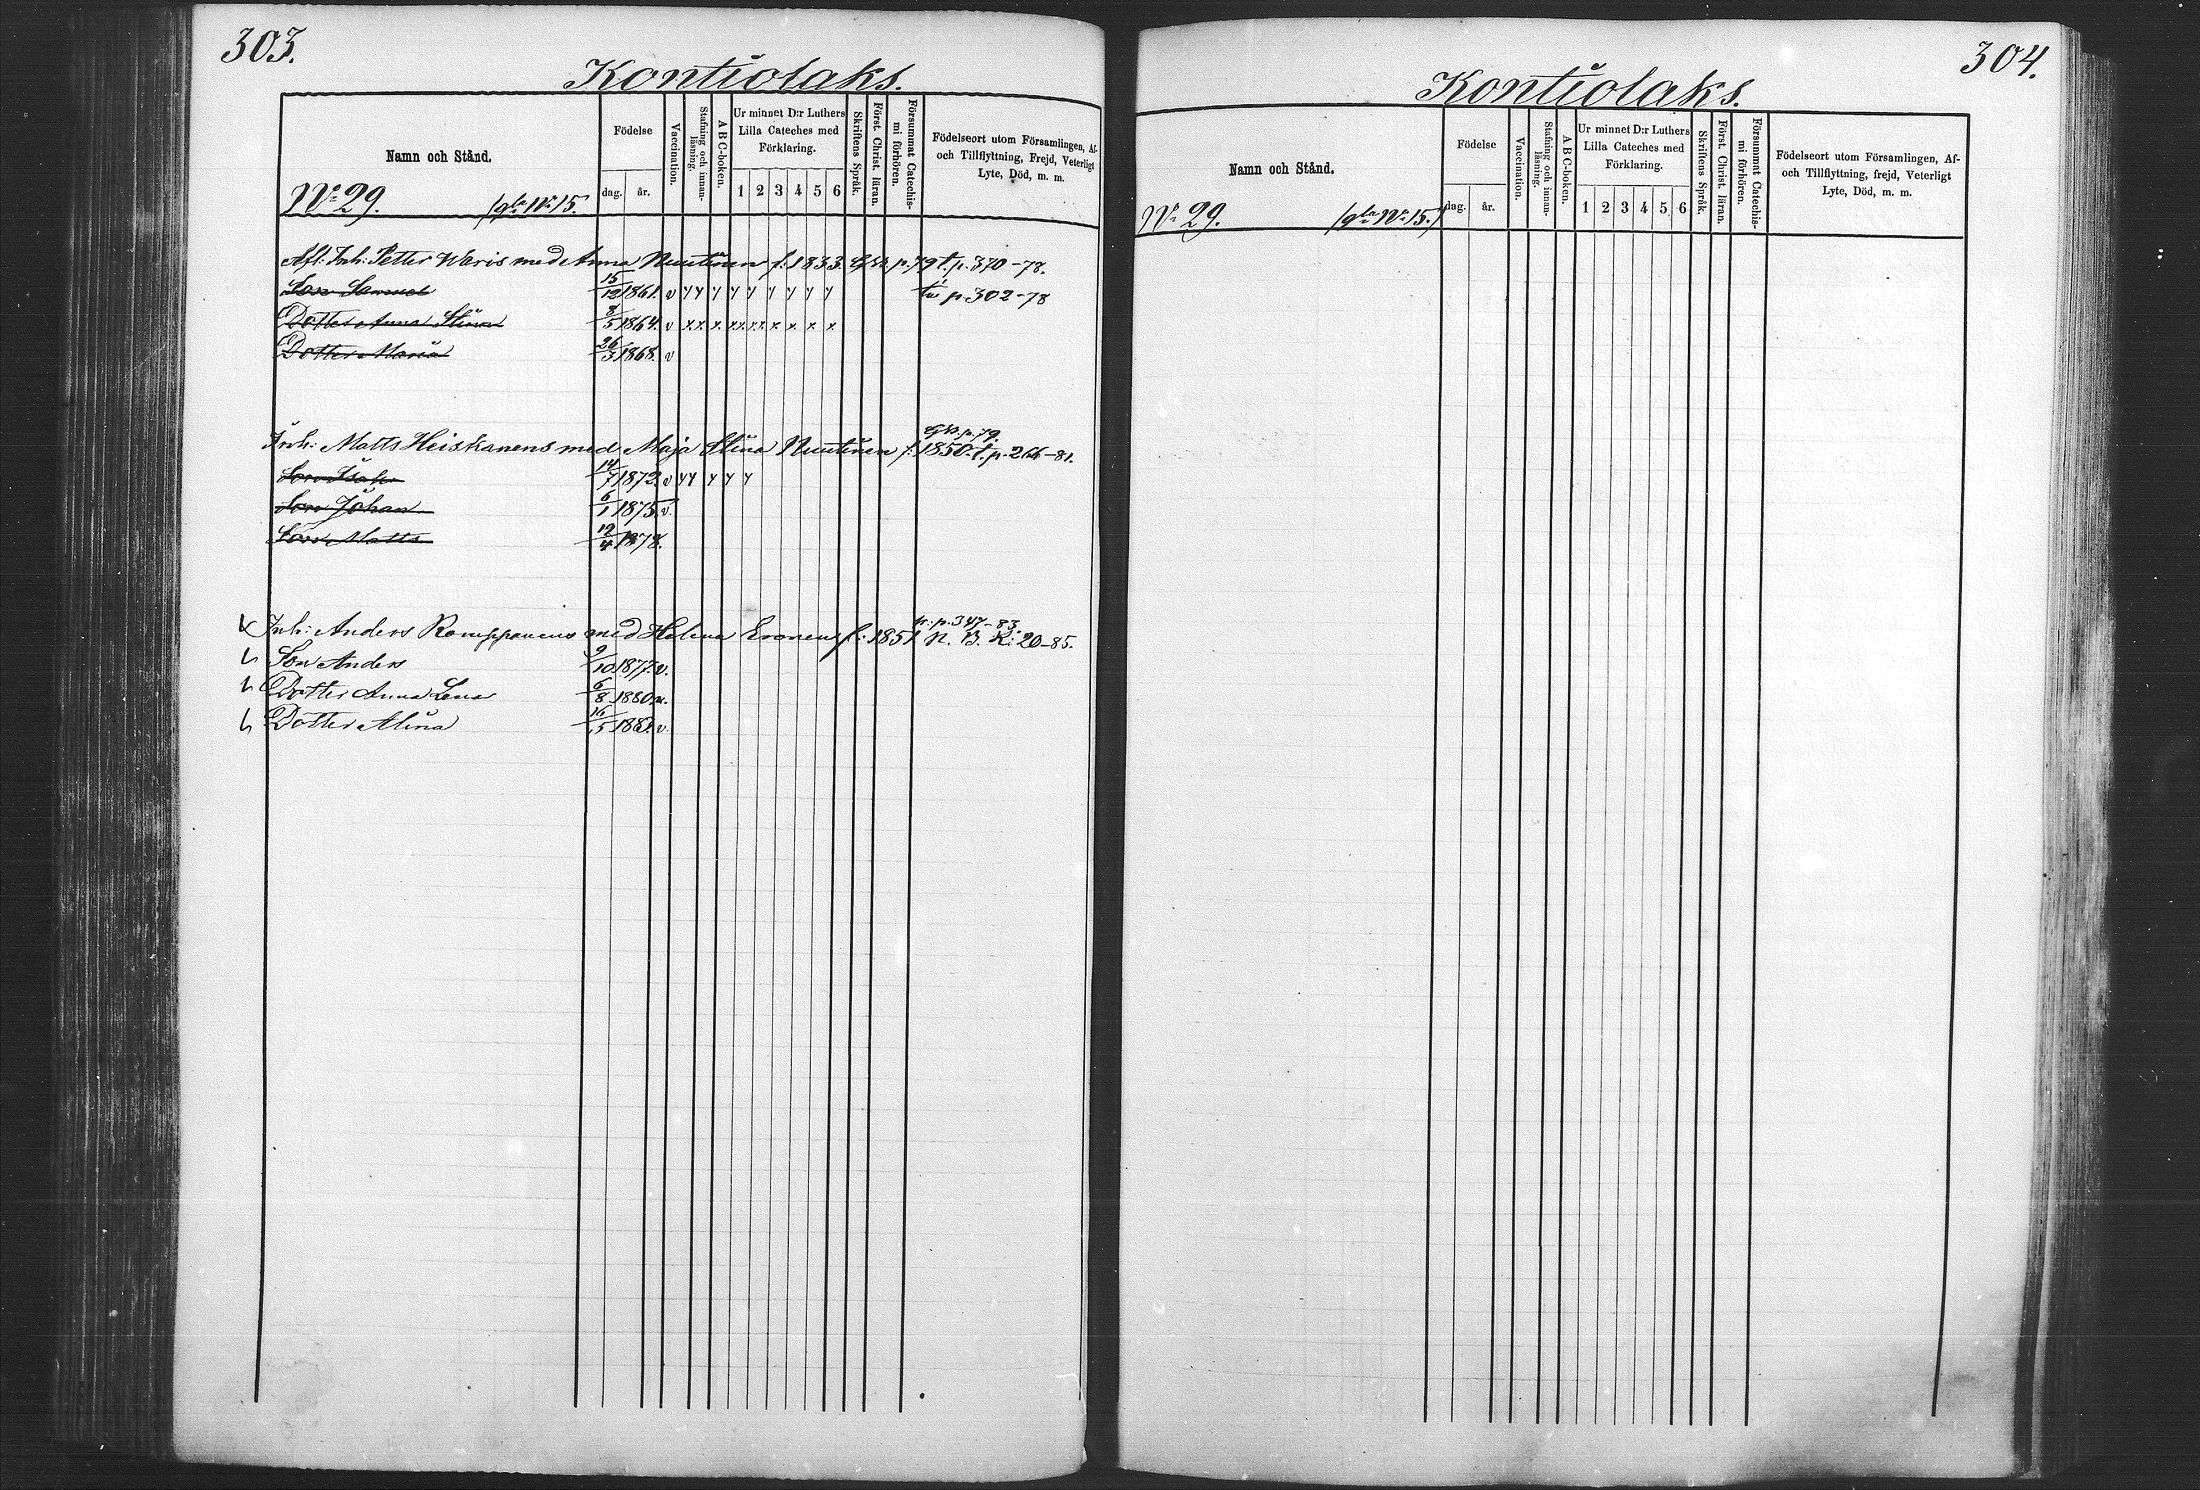 303.
Kontiolaks.
Namn och Stånd.
Födelse
dag. år.
Vaccination.
Stafning och innanläsning.
A B C-boken.
Ur minnet D:r Luthers
Lilla Cateches med
Förklaring.
1 2 3 4 5 6
Skriftens Språk.
Först. Christ. läran.
Försummat Catechismi förhören.
Födelseort utom Församlingen, Af-
och Tillflyttning, Frejd, Veterligt
Lyte, Död, m. m.
No 29. (gla No 15.
Afl: Inh: Petter Waris med Anna Nuutinen f: 1833. Gkb. p. 79 t. p. 370-78.
Son Samuel 15/12 1861. v y y y y y y y y y tu p. 302-78
Dotter Anna Stina 8/5 1864. v x x. x. x x. x x x x. x x
Dotter Maria 26/3 1868. v
Gkb. p. 79.
Inh: Matts Heiskanens med Maja Stina Nuutinen f: 1850. t. p. 266-81.
Son Isak 14/7 1872. v y y y y y
Son Johan 6/1 1875. v.
Son Matts 12/4 1878.
tr. p. 347-83.
Inh: Anders Romppanens med Helena Eronen f: 1851. N. B. K: 20-85.
Son Anders 9/10 1877. v.
Dotter Anna Lena 6/8 1880 v.
Dotter Alina 16/5 1883. v.
304.
Kontiolaks.
Namn och Stånd.
Födelse
dag. år.
Vaccination.
Stafning och innanläsning.
A B C-boken.
Ur minnet D:r Luthers
Lilla Cateches med
Förklaring.
1 2 3 4 5 6
Skriftens Språk.
Först. Christ. läran.
Försummat Catechismi förhören.
Födelseort utom Församlingen, Af-
och Tillflyttning, frejd, Veterligt
Lyte, Död, m. m.
No 29. (gla No 15.)